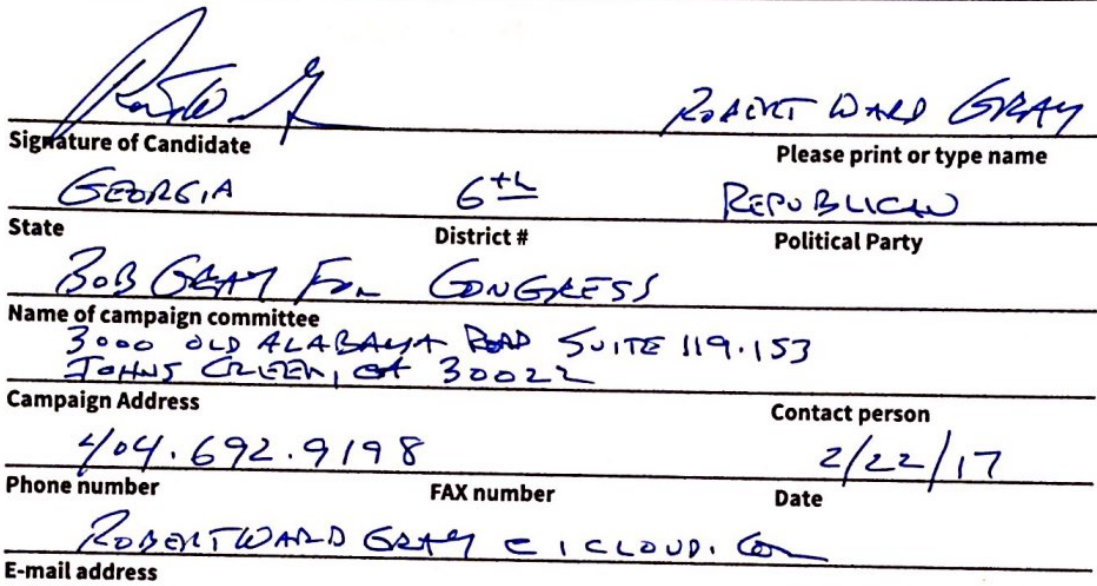 ROBERT WARD GRAY
Signature of Candidate Please print or type name
GEORGIA 6th REPUBLICAN
State District # Political Party
BOB GRAY FOR CONGRESS
Name of campaign committee
3000 OLD ALABAMA ROAD SUITE 119.153
JOHNS CREEK, GA 30022
Campaign Address Contact person
404.692.9198 2/22/17
Phone number FAX number Date
ROBERTWARDGRAY@ICLOUD.COM
E-mail address